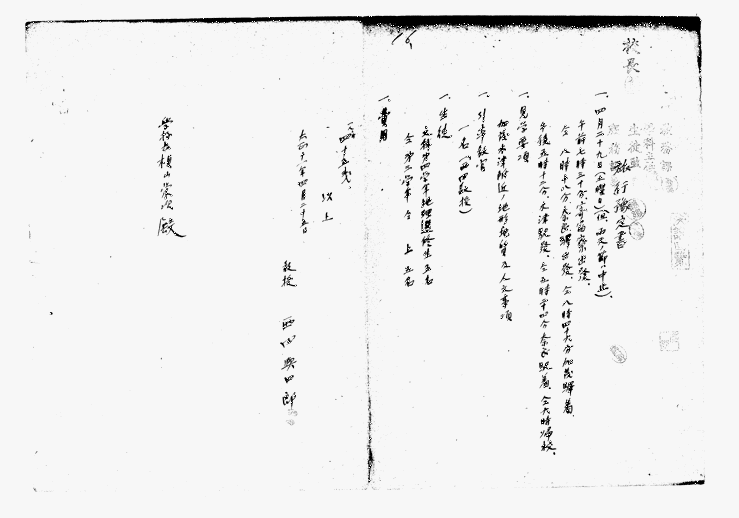 校長
旅行豫定書
一、四月二十九日(土曜日)(但、雨天ノ節ハ中止)、
午前七時三十分、寄宿寮出發、
仝 八時十八分、奈良驛出發、仝八時四十六分加茂驛着、
午後五時十二分、木津駅發、仝五時二十四分奈良駅着、仝六時帰校、
一、見学要項
加茂木津附近ノ地形地質及人文事項
一、引率教官
一名(西田教授)
一、生徒
文科第四学年地理選修生五名
仝 第三学年 仝 上 五名
一、費用
四十五銭、
以上
大正十一年四月二十五日
教授 西田與四郎
学科長横山栄次殿